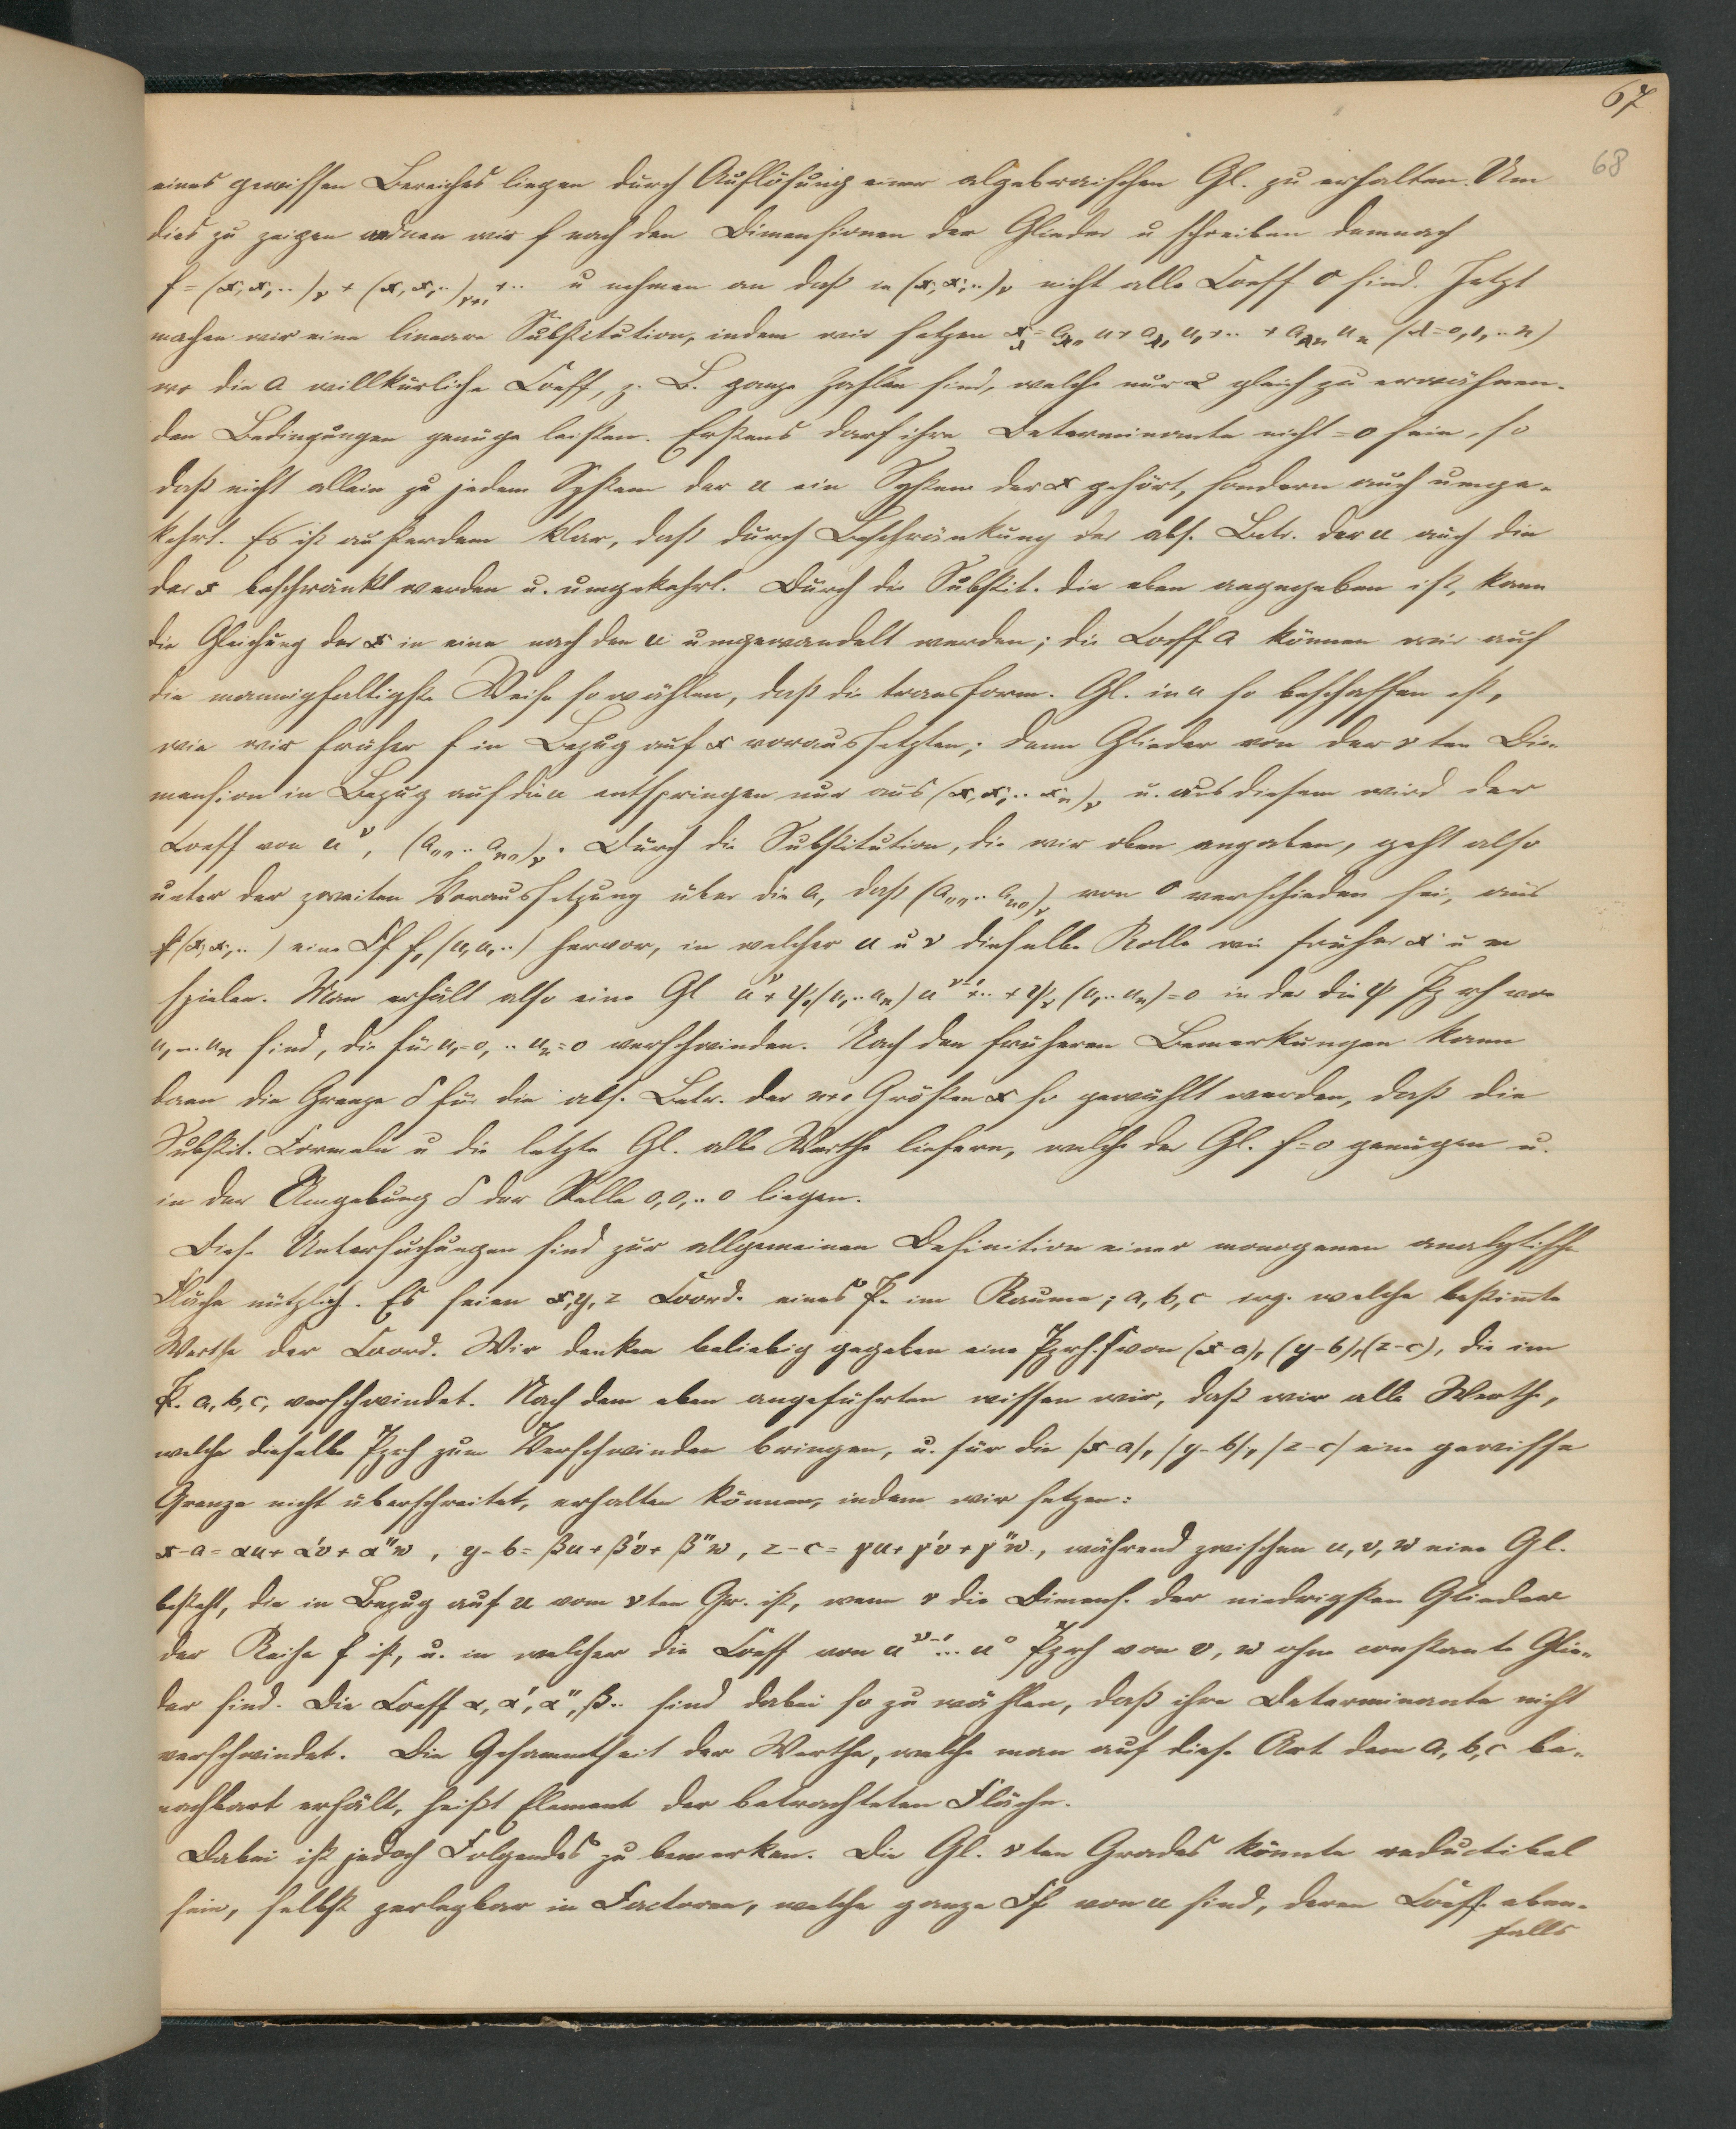 67
68
eines gewissen Bereiches liegen durch Auflösung einer algebraischen Gl. zu erhalten. Um
dies zu zeigen ordnen wir f nach den Dimensionen der Glieder u schreiben demnach
f = (x, x₁, ..)ᵥ + (x, x₁, ..)ᵥ₊₁ + .. u nehmen an daß in (x, x₁, ..)ᵥ nicht alle Coeff 0 sind. Jetzt
machen wir eine lineare Substitution, indem wir setzen x_λ = a_λ0 u + a_λ1 u₁ + .. + a_λn uₙ (λ = 0, 1, .. n)
wo die a willkürliche Coeff, z. B. ganze Zahlen sind, welche nur 2 gleich zu erwähnen-
den Bedingungen genüge leisten. Erstens darf ihre Determinante nicht = 0 sein, so
daß nicht allein zu jedem System der u ein System der x gehört, sondern auch umge-
kehrt. Es ist außerdem klar, daß durch Beschränkung der abs. Betr. der u auch die
der x beschränkt werden u. umgekehrt. Durch die Substit. die eben angegeben ist, kann
die Gleichung der x in eine nach den u umgewandelt werden; die Coeff a können wir auf
die mannigfaltigste Weise so wählen, daß die transform. Gl. in u so beschaffen ist,
wie wir früher f in Bezug auf x voraussetzten; denn Glieder von der ν ten Di-
mension in Bezug auf die u entspringen nur aus (x, x₁, .. xₙ)ᵥ u. aus diesem wird der
Coeff von u^ν, (a₀₀ .. aₙ₀)ᵥ. Durch die Substitution, die wir oben angaben, geht also
unter der zweiten Voraussetzung über die a, daß (a₀₀ .. aₙ₀)ᵥ von 0 verschieden sei, aus
f(x, x₁, ..) eine Ff f₁(u, u₁ ..) hervor, in welcher u u ν dieselbe Rolle wie früher x u m
spielen. Man erhält also eine Gl u^ν + ψ₁(u₁ .. uₙ) u^ν⁻¹ + .. + ψᵥ(u₁ .. uₙ) = 0 in der die ψ Pzrh von
u₁ ... uₙ sind, die für u₁ = 0, .. uₙ = 0 verschwinden. Nach den früheren Bemerkungen kann
dann die Grenze δ für die abs. Betr. der n+1 Größen x so gewählt werden, daß die
Substit. Formeln u die letzte Gl. alle Werthe liefern, welche der Gl. f = 0 genügen u.
in der Umgebung δ der Stelle 0, 0, .. 0 liegen.
Diese Untersuchungen sind zur allgemeinen Definition einer monogenen analytische
Fläche nützlich. Es seien x, y, z Coord. eines P. im Raume; a, b, c irg. welche bestim̄te
Werthe der Coord. Wir denken beliebig gegeben eine Pzrh. f von (x-a), (y-b), (z-c), die im
P. a, b, c, verschwindet. Nach dem eben angeführten wissen wir, daß wir alle Werthe,
welche dieselbe Pzrh zum Verschwinden bringen, u. für die |x-a|, |y-b|, |z-c| eine gewisse
Grenze nicht überschreitet, erhalten können, indem wir setzen:
x-a = αu + α'v + α"w, y-b = βu + β'v + β"w, z-c = γu + γ'v + γ"w, während zwischen u, v, w eine Gl.
besteht, die in Bezug auf u vom ν ten Gr. ist, wenn ν die Dimens. der niedrigsten Glieder
der Reihe f ist, u. in welcher die Coeff von u^ν⁻¹ ... u⁰ Pzrh von v, w ohne constante Glie-
der sind. Die Coeff α, α', α", β .. sind dabei so zu wählen, daß ihre Determinante nicht
verschwindet. Die Gesammtheit der Werthe, welche man auf diese Art dem a, b, c be-
nachbart erhält, heißt Element der betrachteten Fläche.
Dabei ist jedoch Folgendes zu bemerken. Die Gl. ν ten Grades könnte reductibel
sein, selbst zerlegbar in Factoren, welche ganze Ff von u sind, deren Coeff. eben-
falls